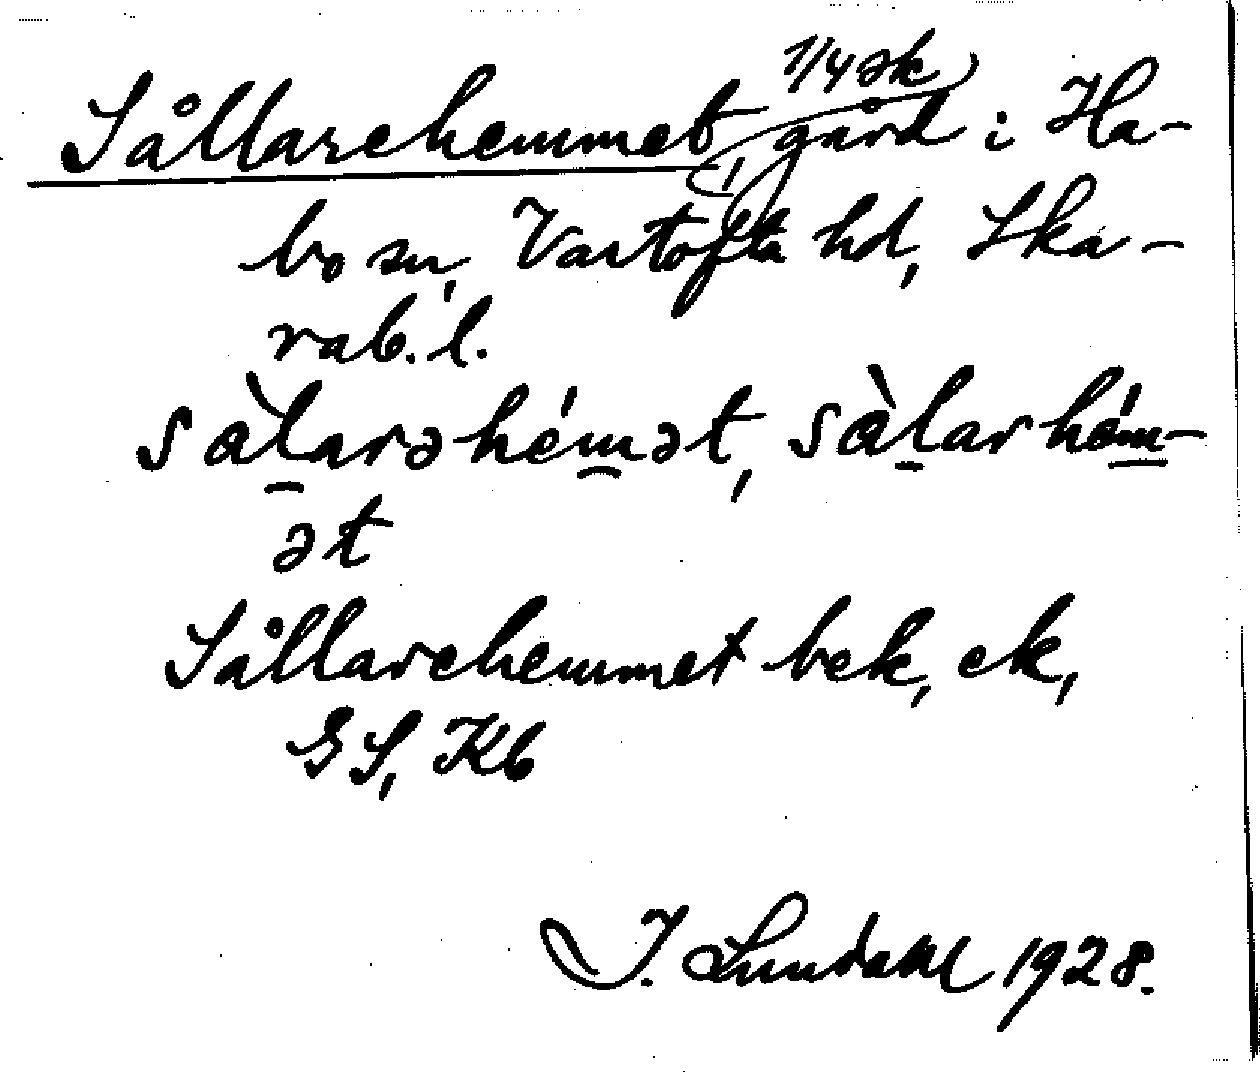 Sållarehemmet, 1/4 sk gård i Ha-
bo sn, Vartofta hd, Ska-
rab. l.
sàlarəhémət, sàlarhém-
ət
Sållarehemmet bek, ek,
GS, Kb
I. Lundahl 1928.